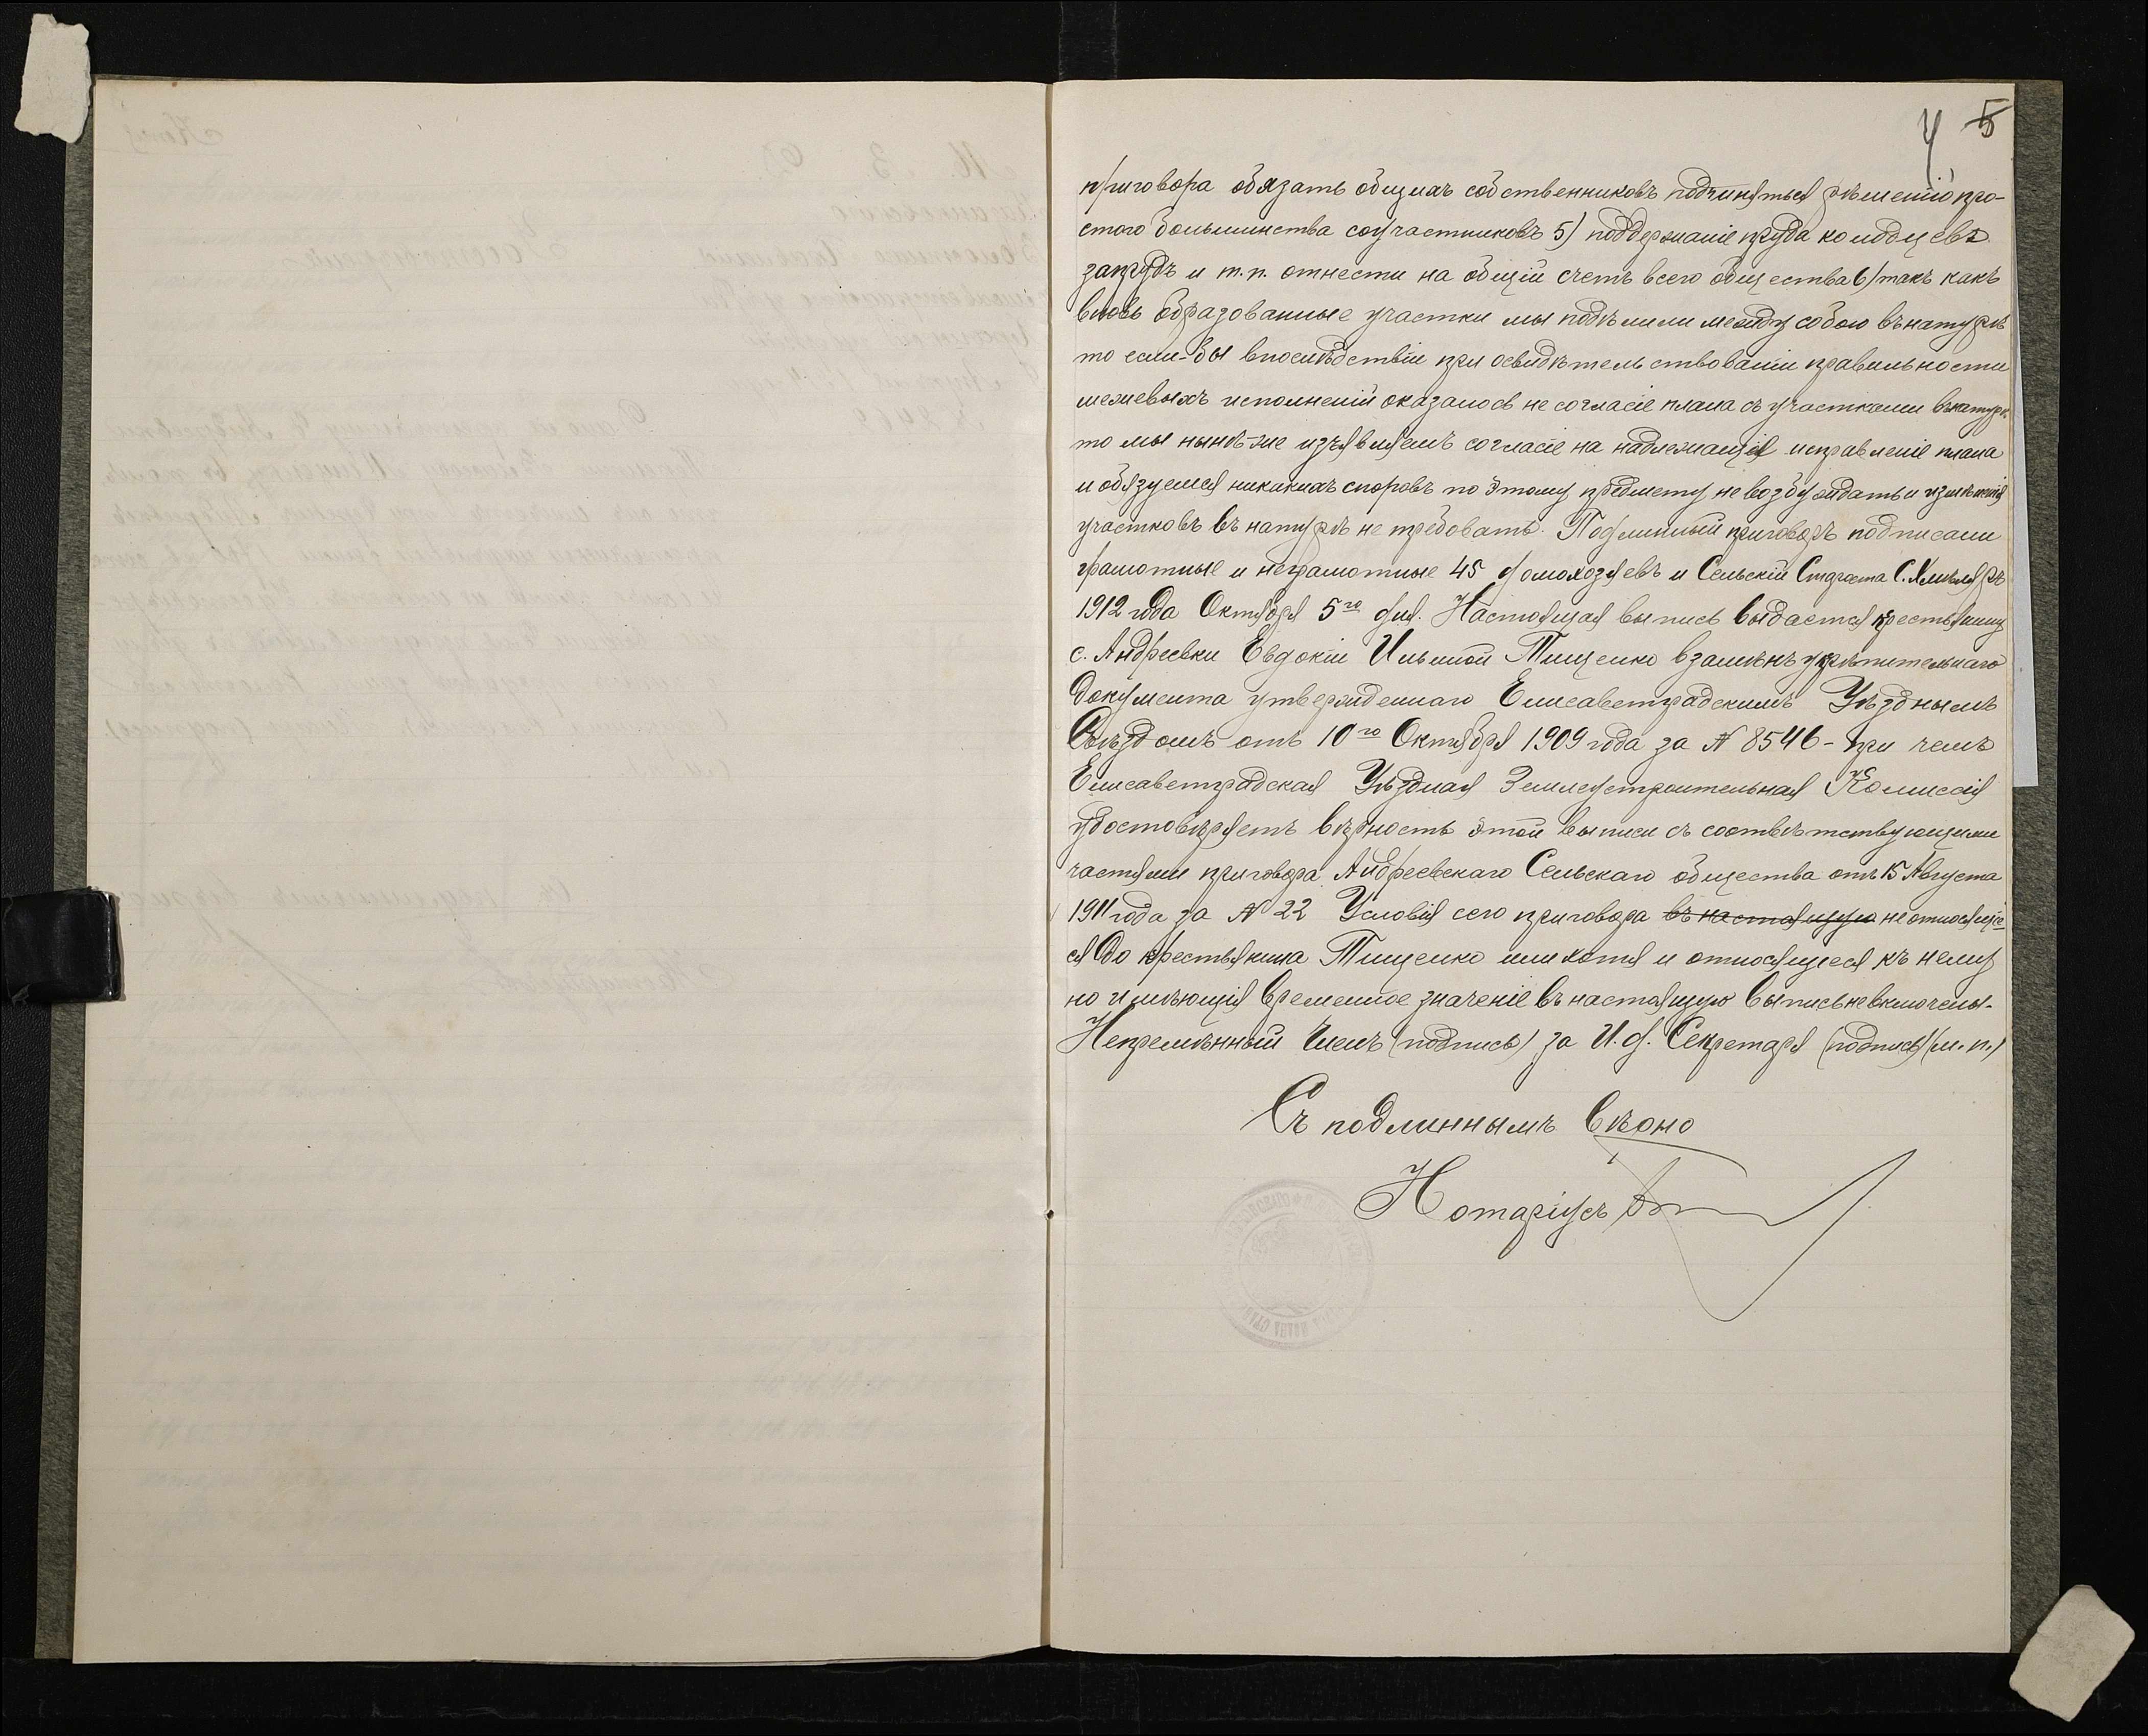 4 5
приговора обязать общихъ собственниковъ подчиняться рѣшенію про-
стого большинства соучастниковъ 5) поддержаніе пруда колодцевъ
запрудъ и т.п. отнести на общій счетъ всего общества 6) такъ какъ
вновь образованные участки мы подѣлили между собою въ натурѣ
то если-бы впослѣдствіи при освидѣтельствованіи правильности
межевыхъ исполненій оказалось не согласіе плана съ участками въ натурѣ
то мы нынѣ-же изъявляемъ согласіе на надлежащія исправленіе плана
и обязуемся никакихъ споровъ по этому предмету не возбуждать и измѣненія
участковъ въ натурѣ не требовать. Подлинный приговоръ подписали
грамотные и неграмотные 45 домохозяевъ и Сельскій Староста С.
1912 года Октября 5го дня. Настоящая выпись выдается крестьянину
с. Андреевки Евдокіи Ильиной Тищенко взамѣнъ укрѣпительнаго
документа утвержденнаго Елисаветградскимъ Уѣзднымъ
Съѣздомъ отъ 10го Октября 1909 года за № 8546 - при чемъ
Елисаветградская Уѣздная Землеустроительная Комиссія
удостовѣряетъ вѣрность этой выписи съ соотвѣтствующими
частями приговора Андреевскаго Сельскаго общества отъ 15 Августа
1911 года за № 22 Условія сего приговора въ настоящую не относящіе
ся до крестьянина Тищенко или хотя и относящіеся къ нему
но имѣющія временное значеніе въ настоящую выпись не включены.
Непремѣнный Членъ (подпись) за И.д. Секретаря (подпись) (м.п.)
Съ подлиннымъ вѣрно
Нотаріусъ